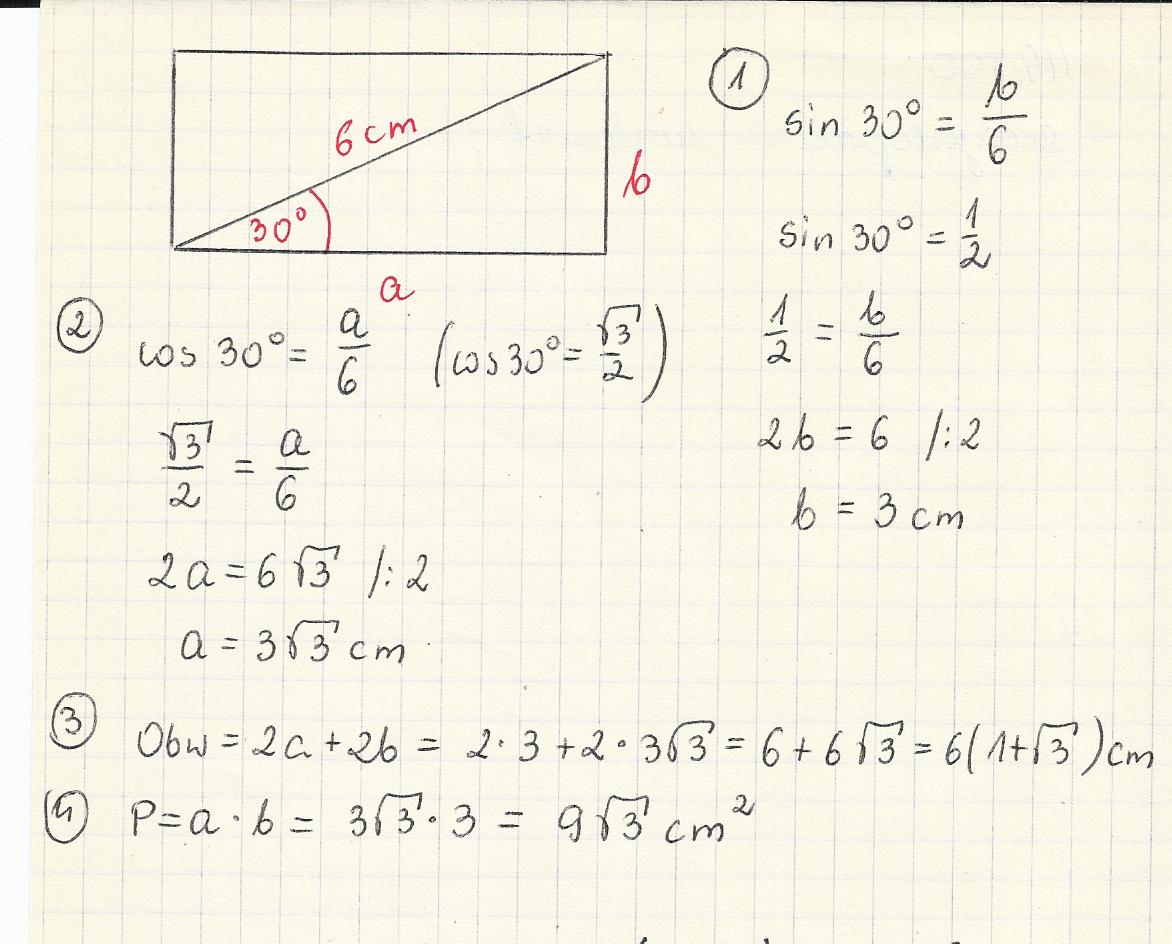 6 cm
30°
b
a
①
sin 30° = b/6
sin 30° = 1/2
1/2 = b/6
2b = 6 /:2
b = 3 cm
②
cos 30° = a/6 (cos 30° = √3/2)
√3/2 = a/6
2a = 6√3 /:2
a = 3√3 cm
③
Obw = 2a + 2b = 2·3 + 2·3√3 = 6 + 6√3 = 6(1+√3) cm
④
P = a · b = 3√3 · 3 = 9√3 cm²